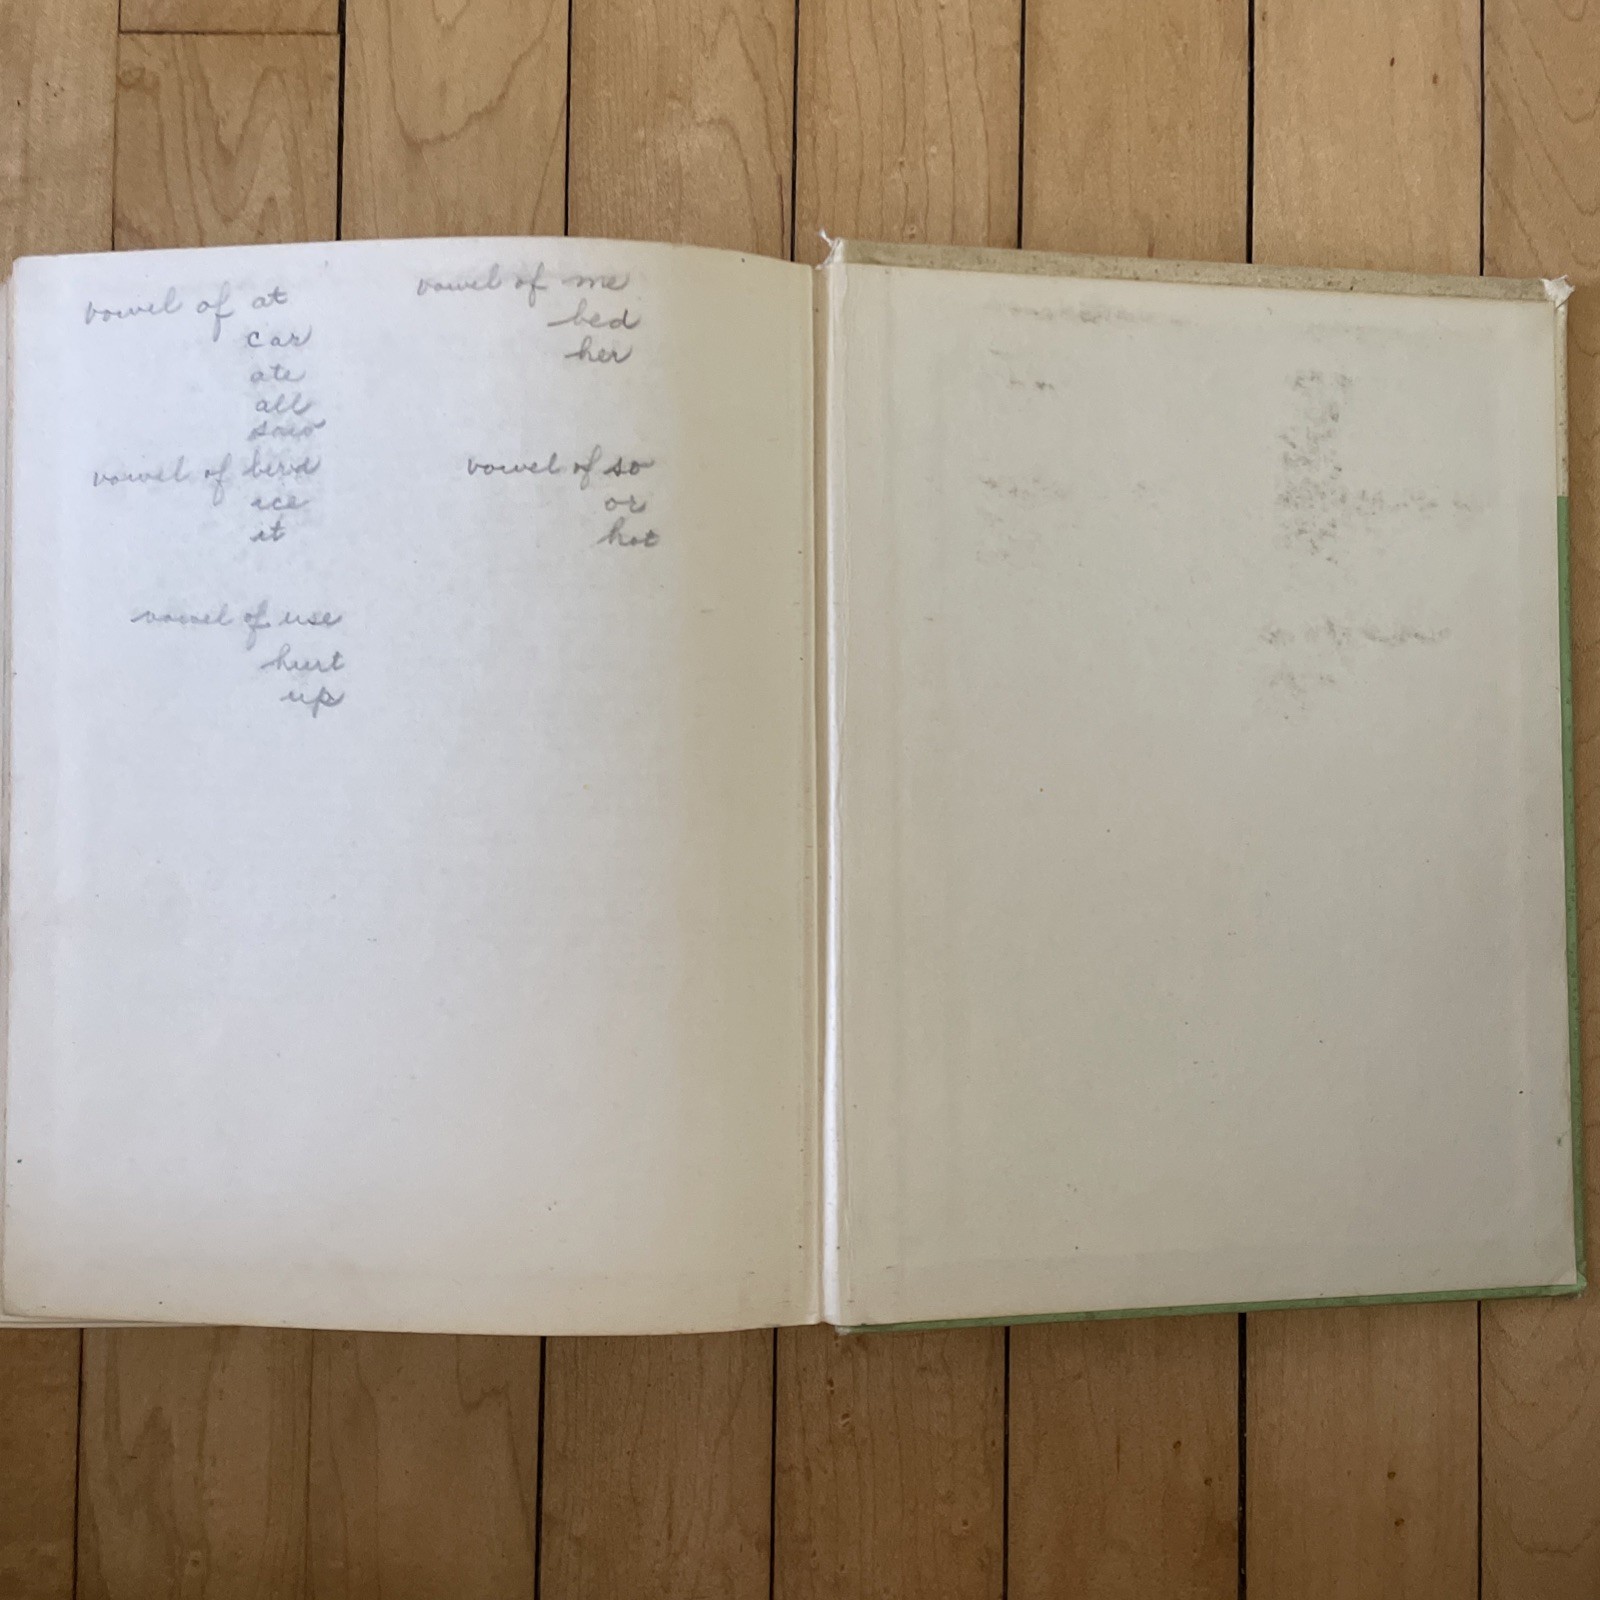 vowel of at
car
ate
all
saw
vowel of bird
ice
it
vowel of use
hurt
up
vowel of me
bed
her
vowel of so
or
hot